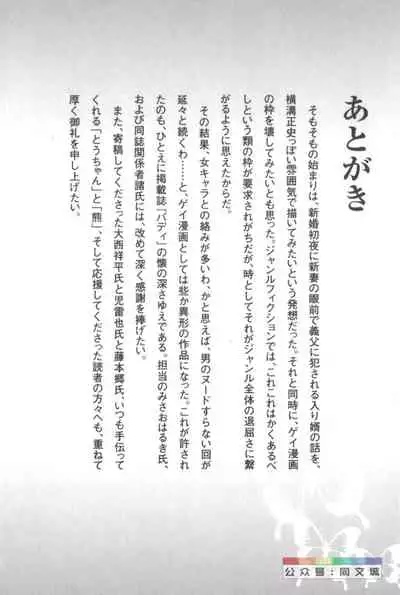 あとがき
そもそもの始まりは、新婚初夜に新妻の眼前で義父に犯される入り婿の話を、
横溝正史っぽい雰囲気で描いてみたいという発想だった。それと同時に、ゲイ漫画
の枠を壊してみたいとも思った。ジャンルフィクションでは、これこれはかくあるべ
しという類の枠が要求されがちだが、時としてそれがジャンル全体の退屈さに繋
がるように思えたからだ。
その結果、女キャラとの絡みが多いわ、かと思えば、男のヌードすらない回が
延々と続くわ……と、ゲイ漫画としては些か異形の作品になった。これが許され
たのも、ひとえに掲載誌「バディ」の懐の深さゆえである。担当のみさおはるき氏、
および同誌関係者諸氏には、改めて深く感謝を捧げたい。
また、寄稿してくださった大西祥平氏と児雷也氏と藤本郷氏、いつも手伝って
くれる「とうちゃん」と「熊」、そして応援してくださった読者の方々へも、重ねて
厚く御礼を申し上げたい。
公众号:同文城